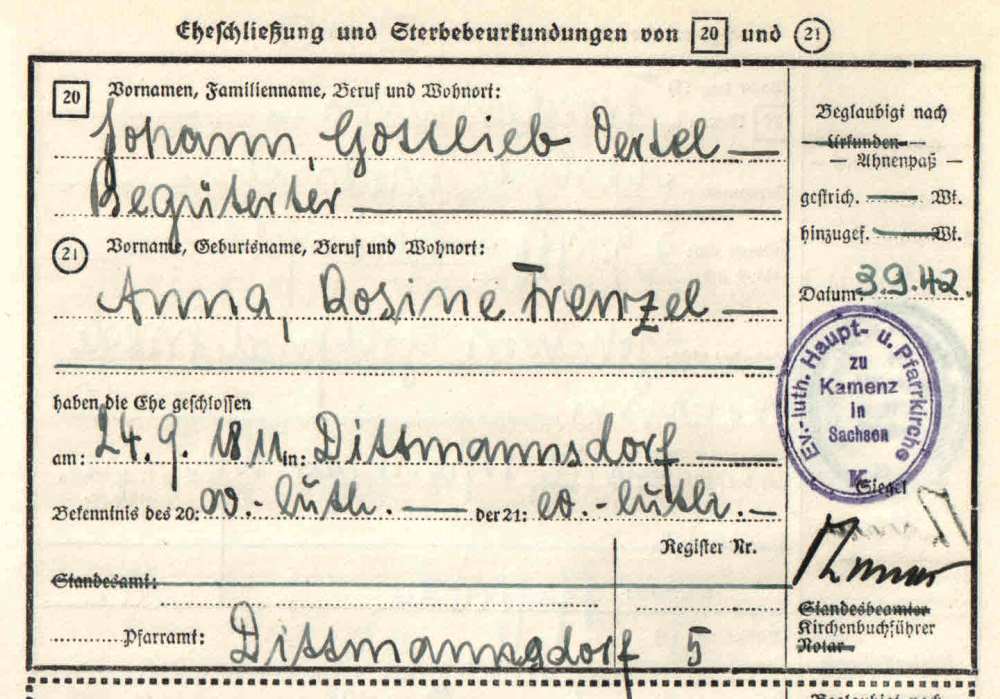 Eheschließung und Sterbebeurkundungen von 20 und 21
20 Vornamen, Familienname, Beruf und Wohnort:
Johann, Gottlieb Oertel —
Begüterter
21 Vorname, Geburtsname, Beruf und Wohnort:
Anna, Rosine Frenzel —
haben die Ehe geschlossen
am: 24. 9. 1811 in: Dittmannsdorf —
Bekenntnis des 20: ev.-luth. — der 21: ev.-luth. —
Register Nr.
Standesamt:
Pfarramt: Dittmannsdorf 5
Beglaubigt nach
Urkunden
— Ahnenpaß —
gestrich. — Wt.
hinzugef. — Wt.
Datum: 3.9.42.
Ev.-luth. Haupt- u. Pfarrkirche
zu
Kamenz
in
Sachsen
K.
Siegel
Standesbeamter
Kirchenbuchführer
Notar
Beglaubigt nach